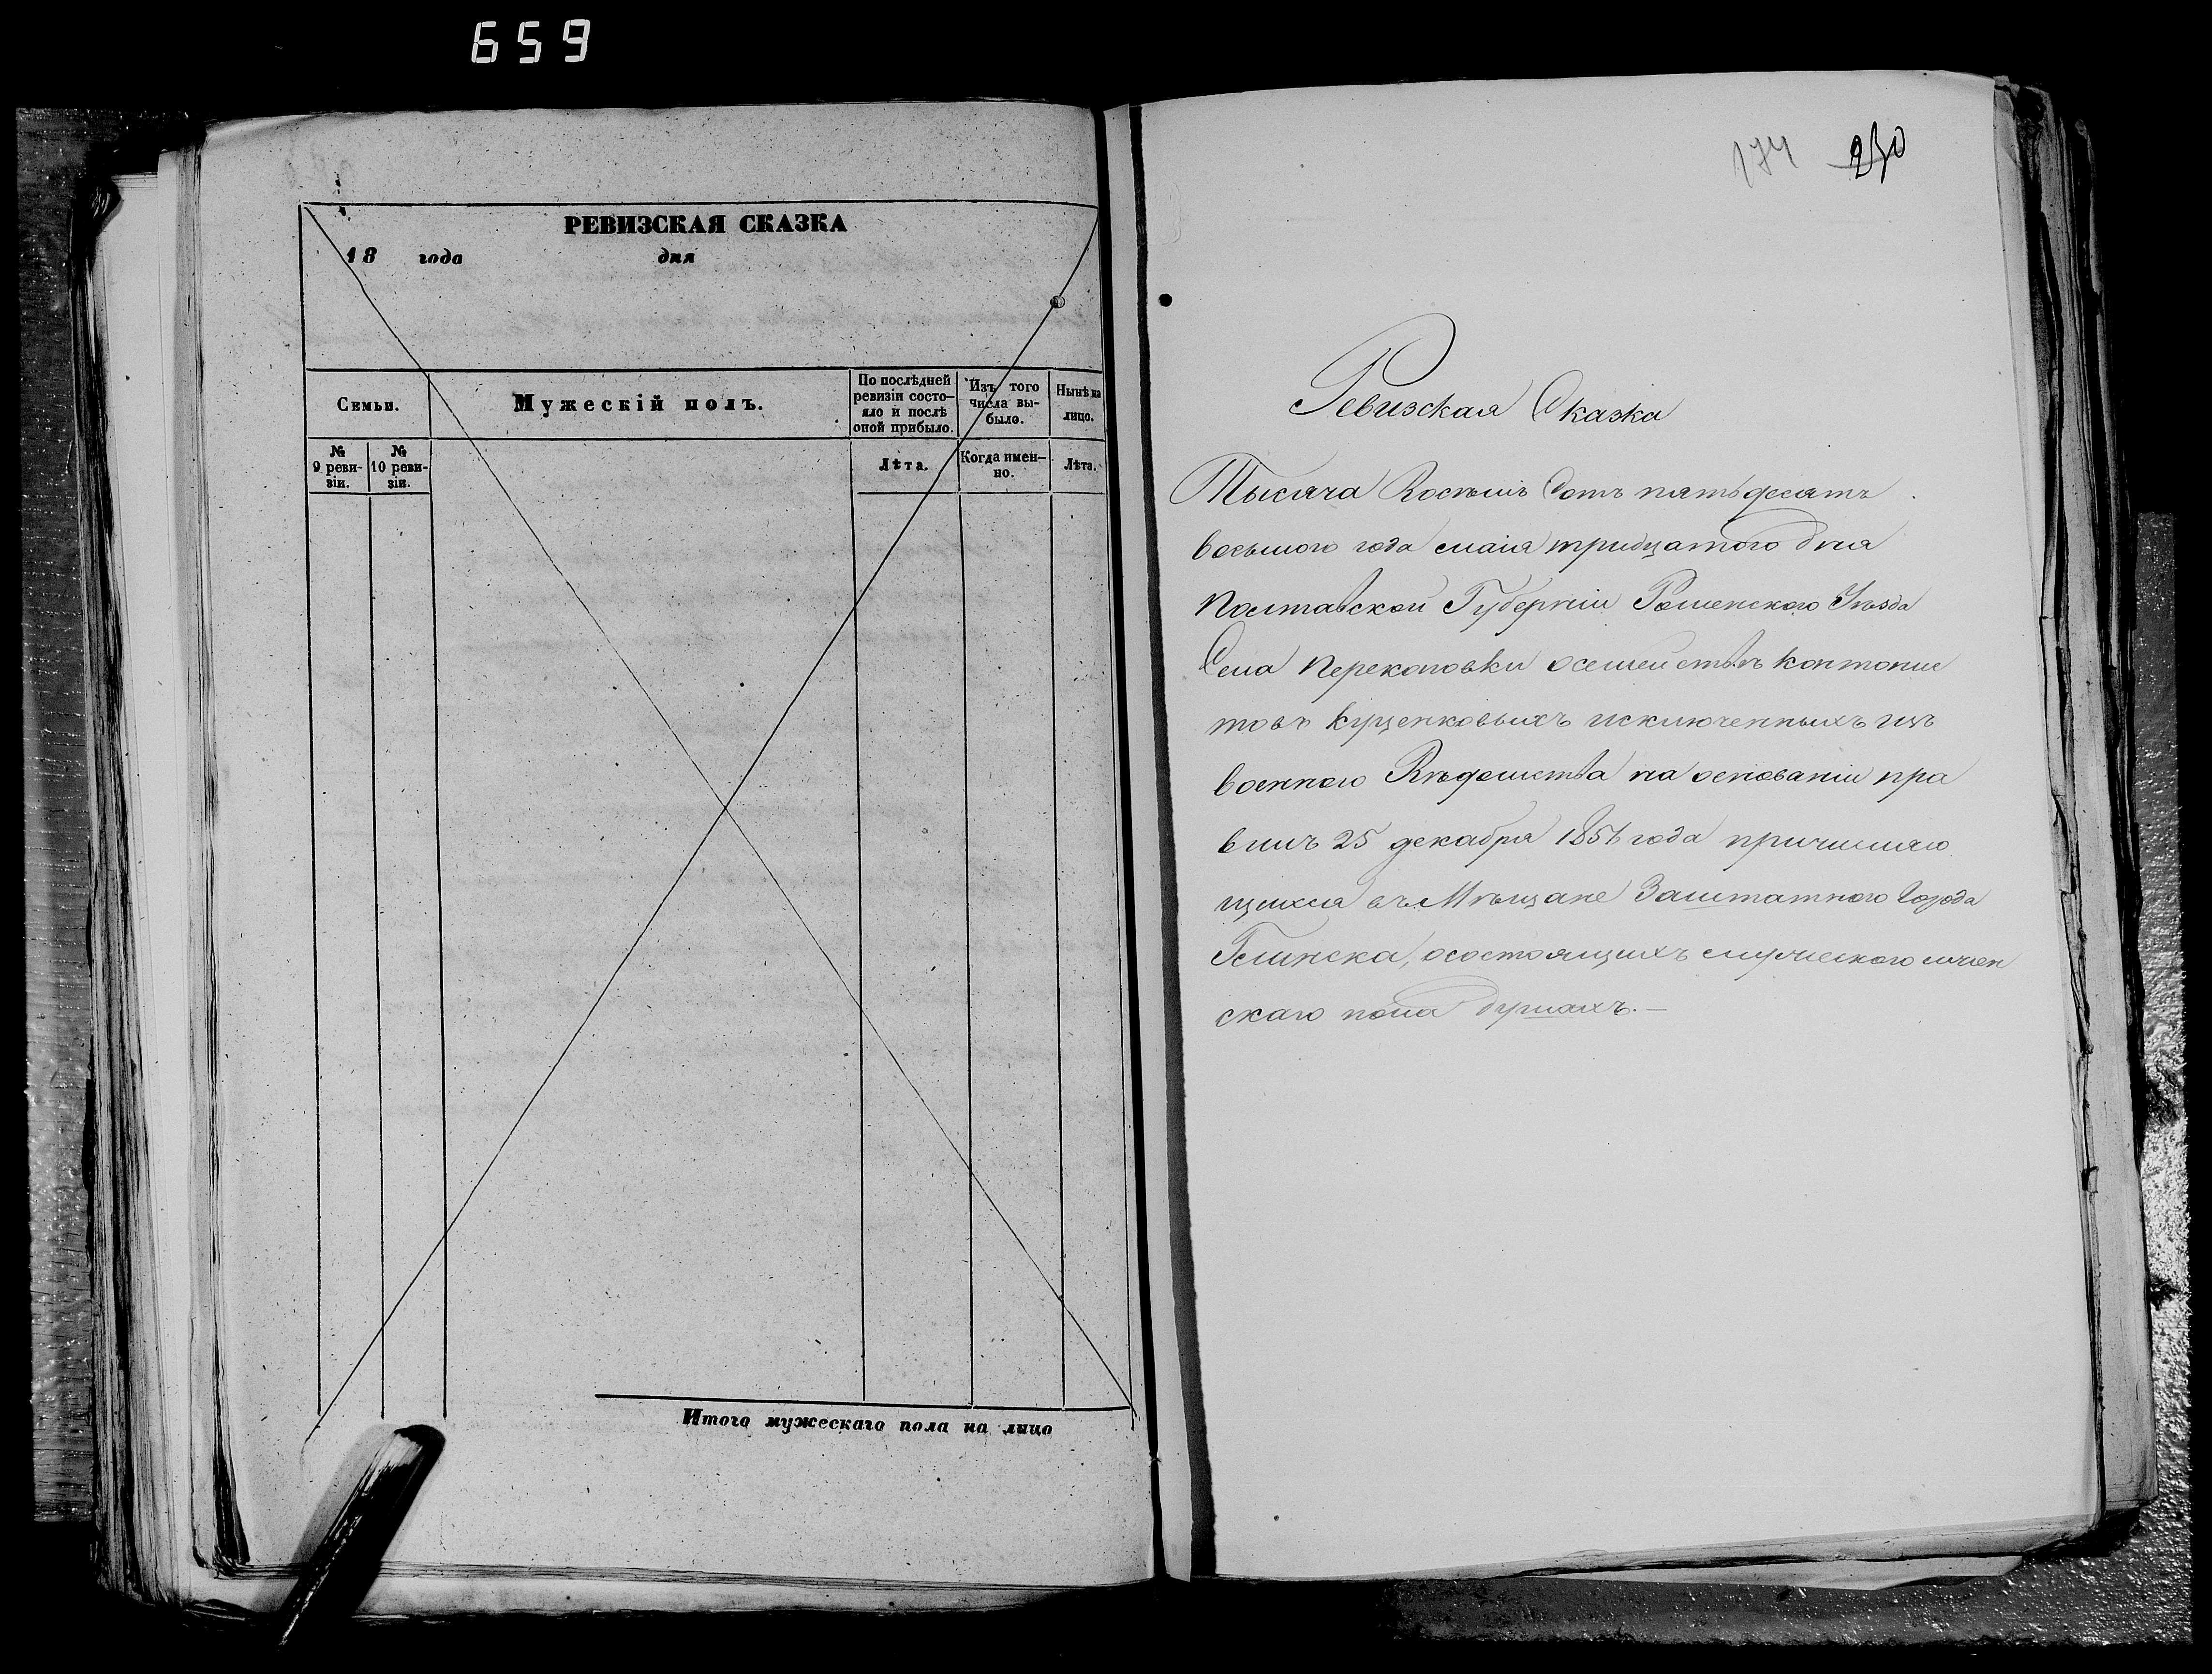 659
РЕВИЗСКАЯ СКАЗКА
18 года дня
Семьи.
Мужескій полъ.
По послѣдней ревизіи состо-
яло и послѣ
оной прибыло.
Изъ того
числа вы-
было.
Нынѣ на
лицо.
№
9 реви-
зіи.
№
10 реви-
зіи.
Лѣта.
Когда имен-
но.
Лѣта.
Итого мужескаго пола на лицо
174
Ревизская Сказка
Тысяча Восѣмь Сотъ пятьдесятъ
восьмого года маія тридцатого дня
Полтавской Губерніи Роменского Уѣзда
Села Перекоповки осемействѣ контонис
товъ Куценковыхъ исключенныхъ изъ
военного Вѣдомства на основаніи пра
вилъ 25 декабря 1856 года причисляю
щихся въ Мѣщане Заштатного Города
Глинска, осостоящихъ мужеского ижен
скаго пола душахъ.—